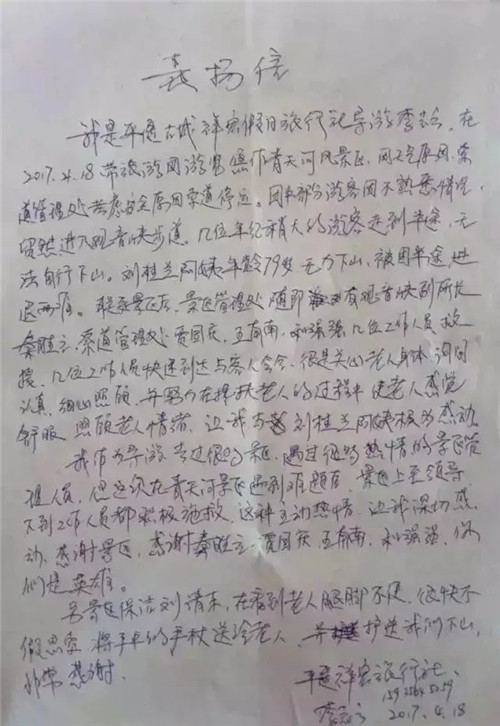 表扬信
我是平遥古城祥宏假日旅行社导游李, 在
2017.4.18带旅游团游览焦作青天河风景区,因天气原因,索
道管理处考虑安全原因索道停运。团中部分游客因不熟悉情况,
贸然进入观音峡步道,几位年纪稍大的游客走到半途,无
法自行下山。刘桂兰阿姨年龄79岁无力下山,被困半途,进
退两难。联系景区后,景区管理处随即有观音峡副所长
秦胜立、索道管理处贾国庆、王有南、和强强几位工作人员救
援,几位工作人员快速到达与客人会合,很是关心老人身体询问
认真,细心照顾,并努力在搀扶老人的过程中使老人感觉
舒服,照顾老人情绪,让我与刘桂兰阿姨极为感动
我作为导游去过很多景区,遇过很多热情的景区管
理人员,但这次在青天河景区遇到难题后,景区上至领导
下到工作人员都积极施救,这种主动热情,让我深切感
动,感谢景区,感谢秦胜立、贾国庆、王有南、和强强,你
们是英雄。
另景区保洁刘清东,在看到老人腿脚不便,很快不
假思索将手中的手杖送给老人,并护送我们下山,
非常感谢.
平遥祥宏旅行社
2017.4.18